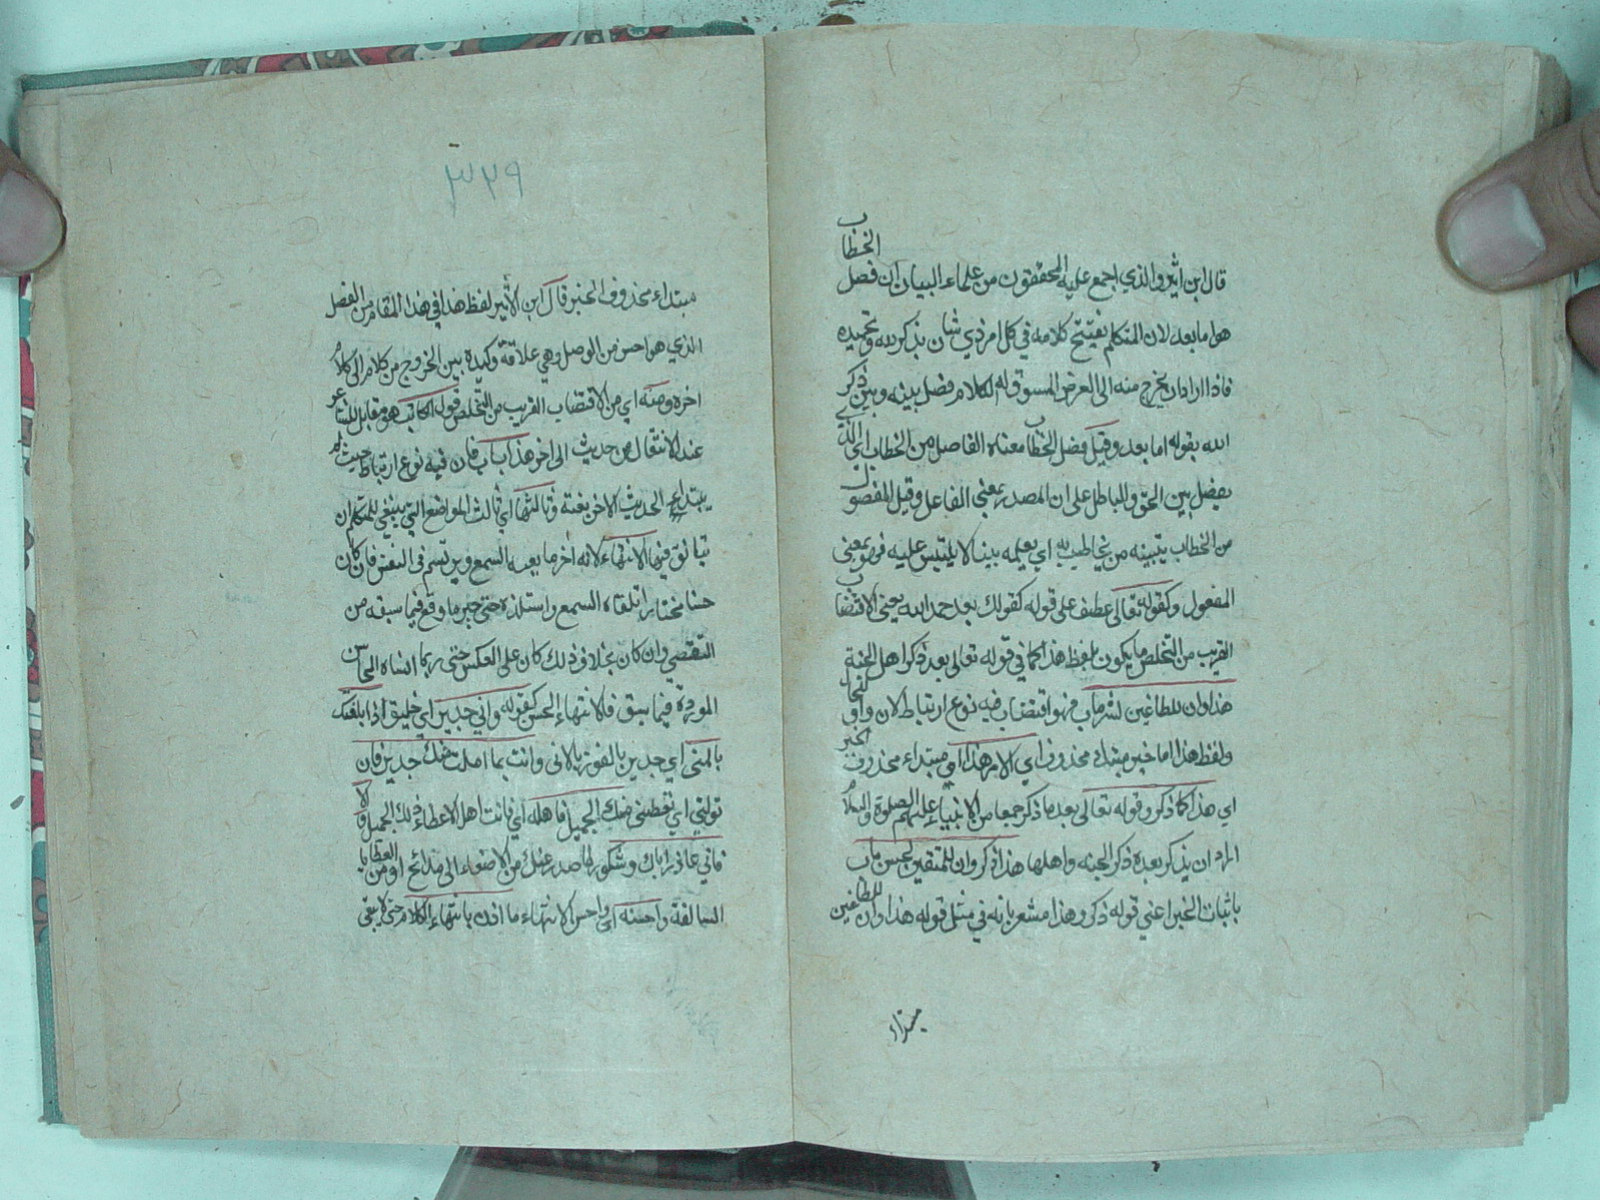 قال ابن اثير والذي اجمع عليه المحققون من علماء البيان ان فصل الخطاب
هو اما بعد لان المتكلم يفتتح كلامه في كل امر ذي شان بذكر الله وتحميده
فاذا اراد ان يخرج منه الى الغرض المسوق له الكلام فصل بينه وبين ذكر
الله بقوله اما بعد وقيل فصل الخطاب معناه الفاصل من الخطاب اي الذي
يفصل بين الحق والباطل على ان المصدر بمعنى الفاعل وقيل المفصول
من الخطاب يتبينه من يخاطب به اي يعلمه بينا لا يلتبس عليه فهو بمعنى
المفعول وكقوله تعالى عطف على قوله كقولك بعد حمد الله يعني الاقتضاب
القريب من التخلص ما يكون بلفظ هذا كما في قوله تعالى بعد ذكر اهل الجنة
هذا وان للطاغين لشر ماب فهو اقتضاب فيه نوع ارتباط لان واو الحال
ولفظ هذا اما خبر مبتداء محذوف اي الامر هذا او مبتداء محذوف الخبر
اي هذا كما ذكر وقوله تعالى بعد ما ذكر جمعا من الانبياء عليهم الصلوة والسلام
اراد ان يذكر بعده ذكر الجنه واهلها هذا ذكر وان للمتقين لحسن ماب
باثبات الخبر اعني قوله ذكر وهذا مشعر بانه في مثل قوله هذا وان للطاغين
مبتداء
٣٢٩
مبتداء محذوف الخبر قال ابن الاثير لفظ هذا في هذا المقام من الفصل
الذي هو احسن من الوصل وهي علاقة وكيدة بين الخروج من كلام الى كلام
اخره ومنه اي من الاقتضاب القريب من التخلص قول الكاتب هو مقابل للشاعر
عند الانتقال من حديث الى اخر هذا باب فان فيه نوع ارتباط حيث لم
يبتدء الحديث الاخر بغتة وثالثها اي ثالث المواضع التي ينبغي للمتكلم ان
يتانق فيها الانتهاء لانه اخر ما يعيه السمع ويرتسم في النفس فان كان
حسنا مختارا تلقاه السمع واستلذه حتى جبر ما وقع فيما سبقه من
التقصير وان كان بخلاف ذلك كان على العكس حتى ربما انساه المحاسن
الموردة فيما سبق فالانتهاء الحسن كقوله واني جدير اي خليق اذا بلغتك
بالمنى اي جدير بالفوز بالاماني وانت بما املت منك جدير فان
تولني اي تعطني منك الجميل فاهله اي فانت اهل لاعطاء ذلك الجميل والا
فاني عاذر اياك وشكور لما صدر عنك من الاصغاء الى مدائحي او من العطايا
السالفة واحسنه اي واحسن الانتهاء ما اذن بانتهاء الكلام حتى لا يبقى